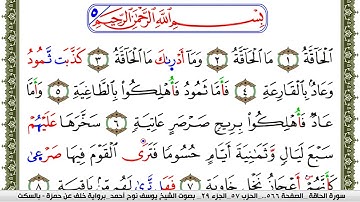 ٥
بِسْمِ ٱللَّهِ ٱلرَّحْمَٰنِ ٱلرَّحِيمِ
ٱلْحَاقَّةُ ١ مَا ٱلْحَاقَّةُ ٢ وَمَآ أَدْرَىٰكَ مَا ٱلْحَاقَّةُ ٣ كَذَّبَتْ ثَمُودُ
وَعَادٌۢ بِٱلْقَارِعَةِ ٤ فَأَمَّا ثَمُودُ فَأُهْلِكُوا۟ بِٱلطَّاغِيَةِ ٥ وَأَمَّا
عَادٌ فَأُهْلِكُوا۟ بِرِيحٍ صَرْصَرٍ عَاتِيَةٍ ٦ سَخَّرَهَا عَلَيْهُمْ
سَبْعَ لَيَالٍ وَثَمَٰنِيَةَ أَيَّامٍ حُسُومًا فَتَرَى ٱلْقَوْمَ فِيهَا صَرْعَىٰ
كَأَنَّهُمْ أَعْجَازُ نَخْلٍ خَاوِيَةٍ ٧ فَهَلْ تَرَىٰ لَهُم مِّنۢ بَاقِيَةٍ ٨
سورة الحاقة _الصفحة ٥٦٦_ الحزب ٥٧ _الجزء ٢٩_ بصوت الشيخ يوسف نوح أحمد _برواية خلف عن حمزة - بالسكت